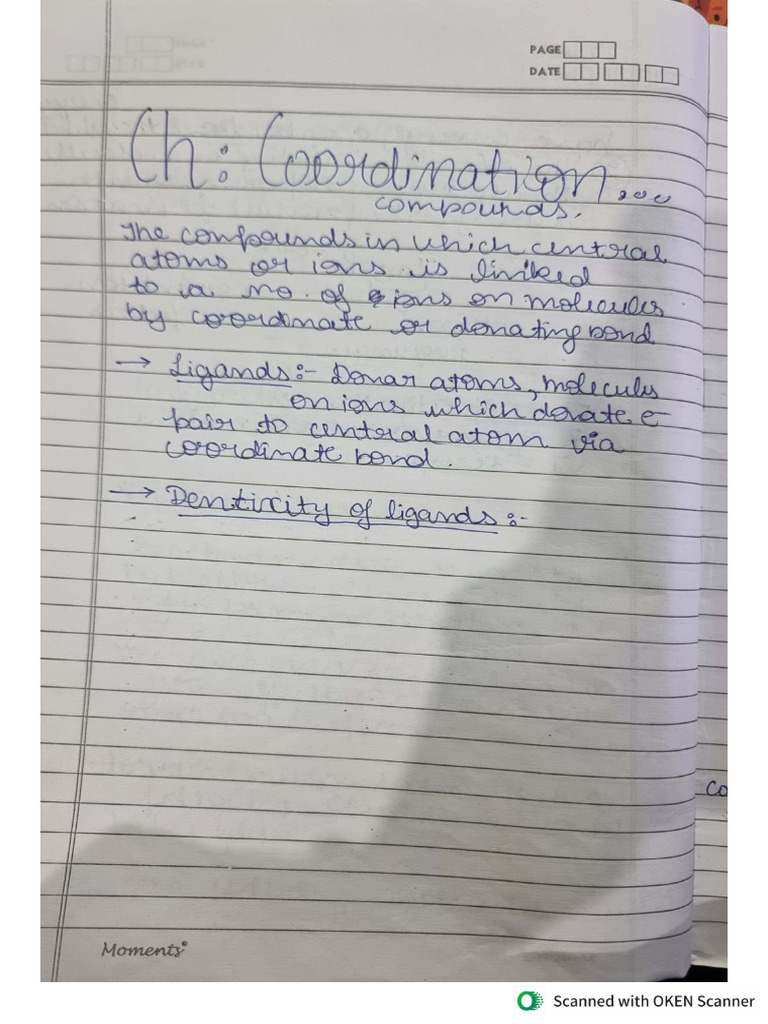 PAGE
DATE
Ch: Coordination...
compounds.
The compounds in which central
atoms or ions is linked
to a no. of ions or molecules
by coordinate or donating bond
→ Ligands:- Donar atoms, molecules
or ions which donate e-
pair to central atom via
coordinate bond.
→ Denticity of ligands:-
Co
Moments
Scanned with OKEN Scanner